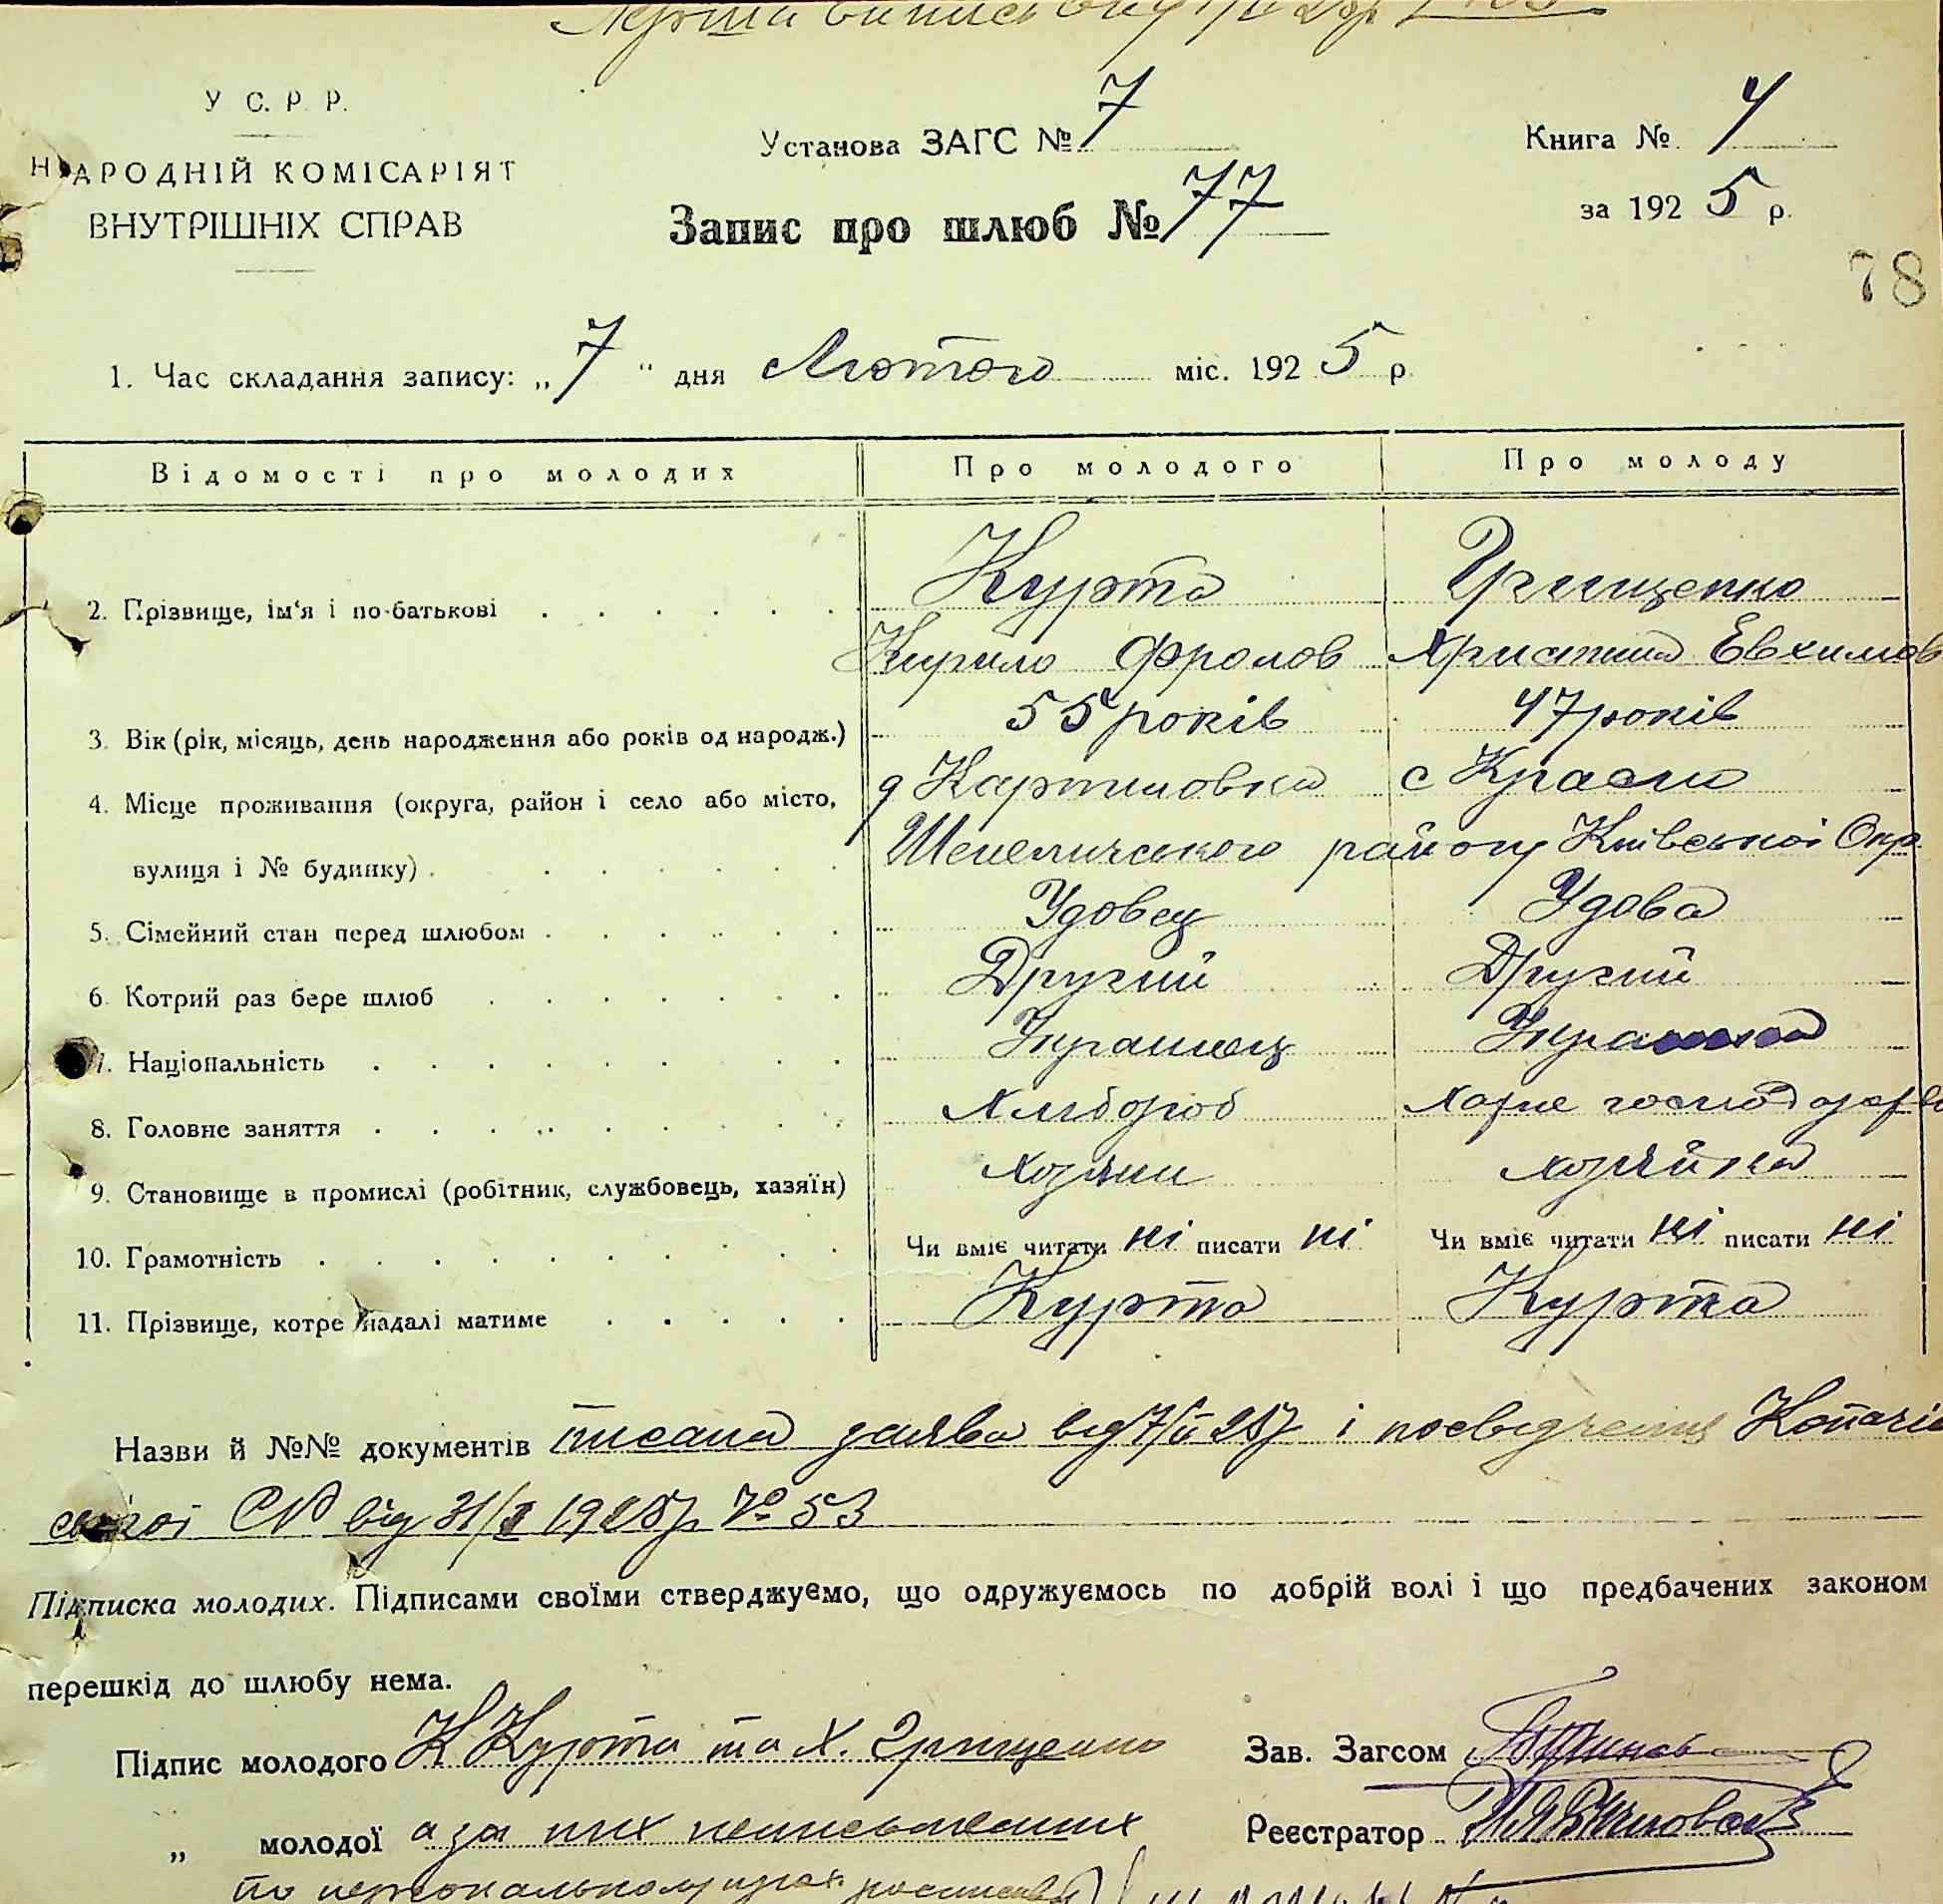 У С. Р. Р.
НАРОДНІЙ КОМІСАРІЯТ
ВНУТРІШНІХ СПРАВ
Установа ЗАГС № 7
Запис про шлюб № 77
Книга № 4
за 1925 р.
78
1. Час складання запису: „7" дня Лютого міс. 1925 р.
Відомості про молодих Про молодого Про молоду
2. Прізвище, ім'я і по-батькові Курта Грищенко
Кирило Фролов Христина Евхимов
3. Вік (рік, місяць, день народження або років од народж.) 55 років 47 років
4. Місце проживання (округа, район і село або місто, д с Красно
вулиця і № будинку) Шепеличського району Київської Окр
5. Сімейний стан перед шлюбом Удовец Удова
6. Котрий раз бере шлюб Другий Другий
7. Національність Украінец
8. Головне заняття Хлібороб
9. Становище в промислі (робітник, службовець, хазяїн) Хозяин хозяйка
10. Грамотність Чи вміє читати ні писати ні Чи вміє читати ні писати ні
11. Прізвище, котре надалі матиме Курта Курта
Назви й №№ документів писана заява від 7/ІІ 25р і посвідчення Копачів
ської СР від 31/І 1925р № 53
Підписка молодих. Підписами своїми стверджуємо, що одружуємось по добрій волі і що предбачених законом
перешкід до шлюбу нема.
Підпис молодого К Курта та Х. Грищенко
Зав. Загсом
„ молодої а за них неписьменних
Реєстратор
по персональному